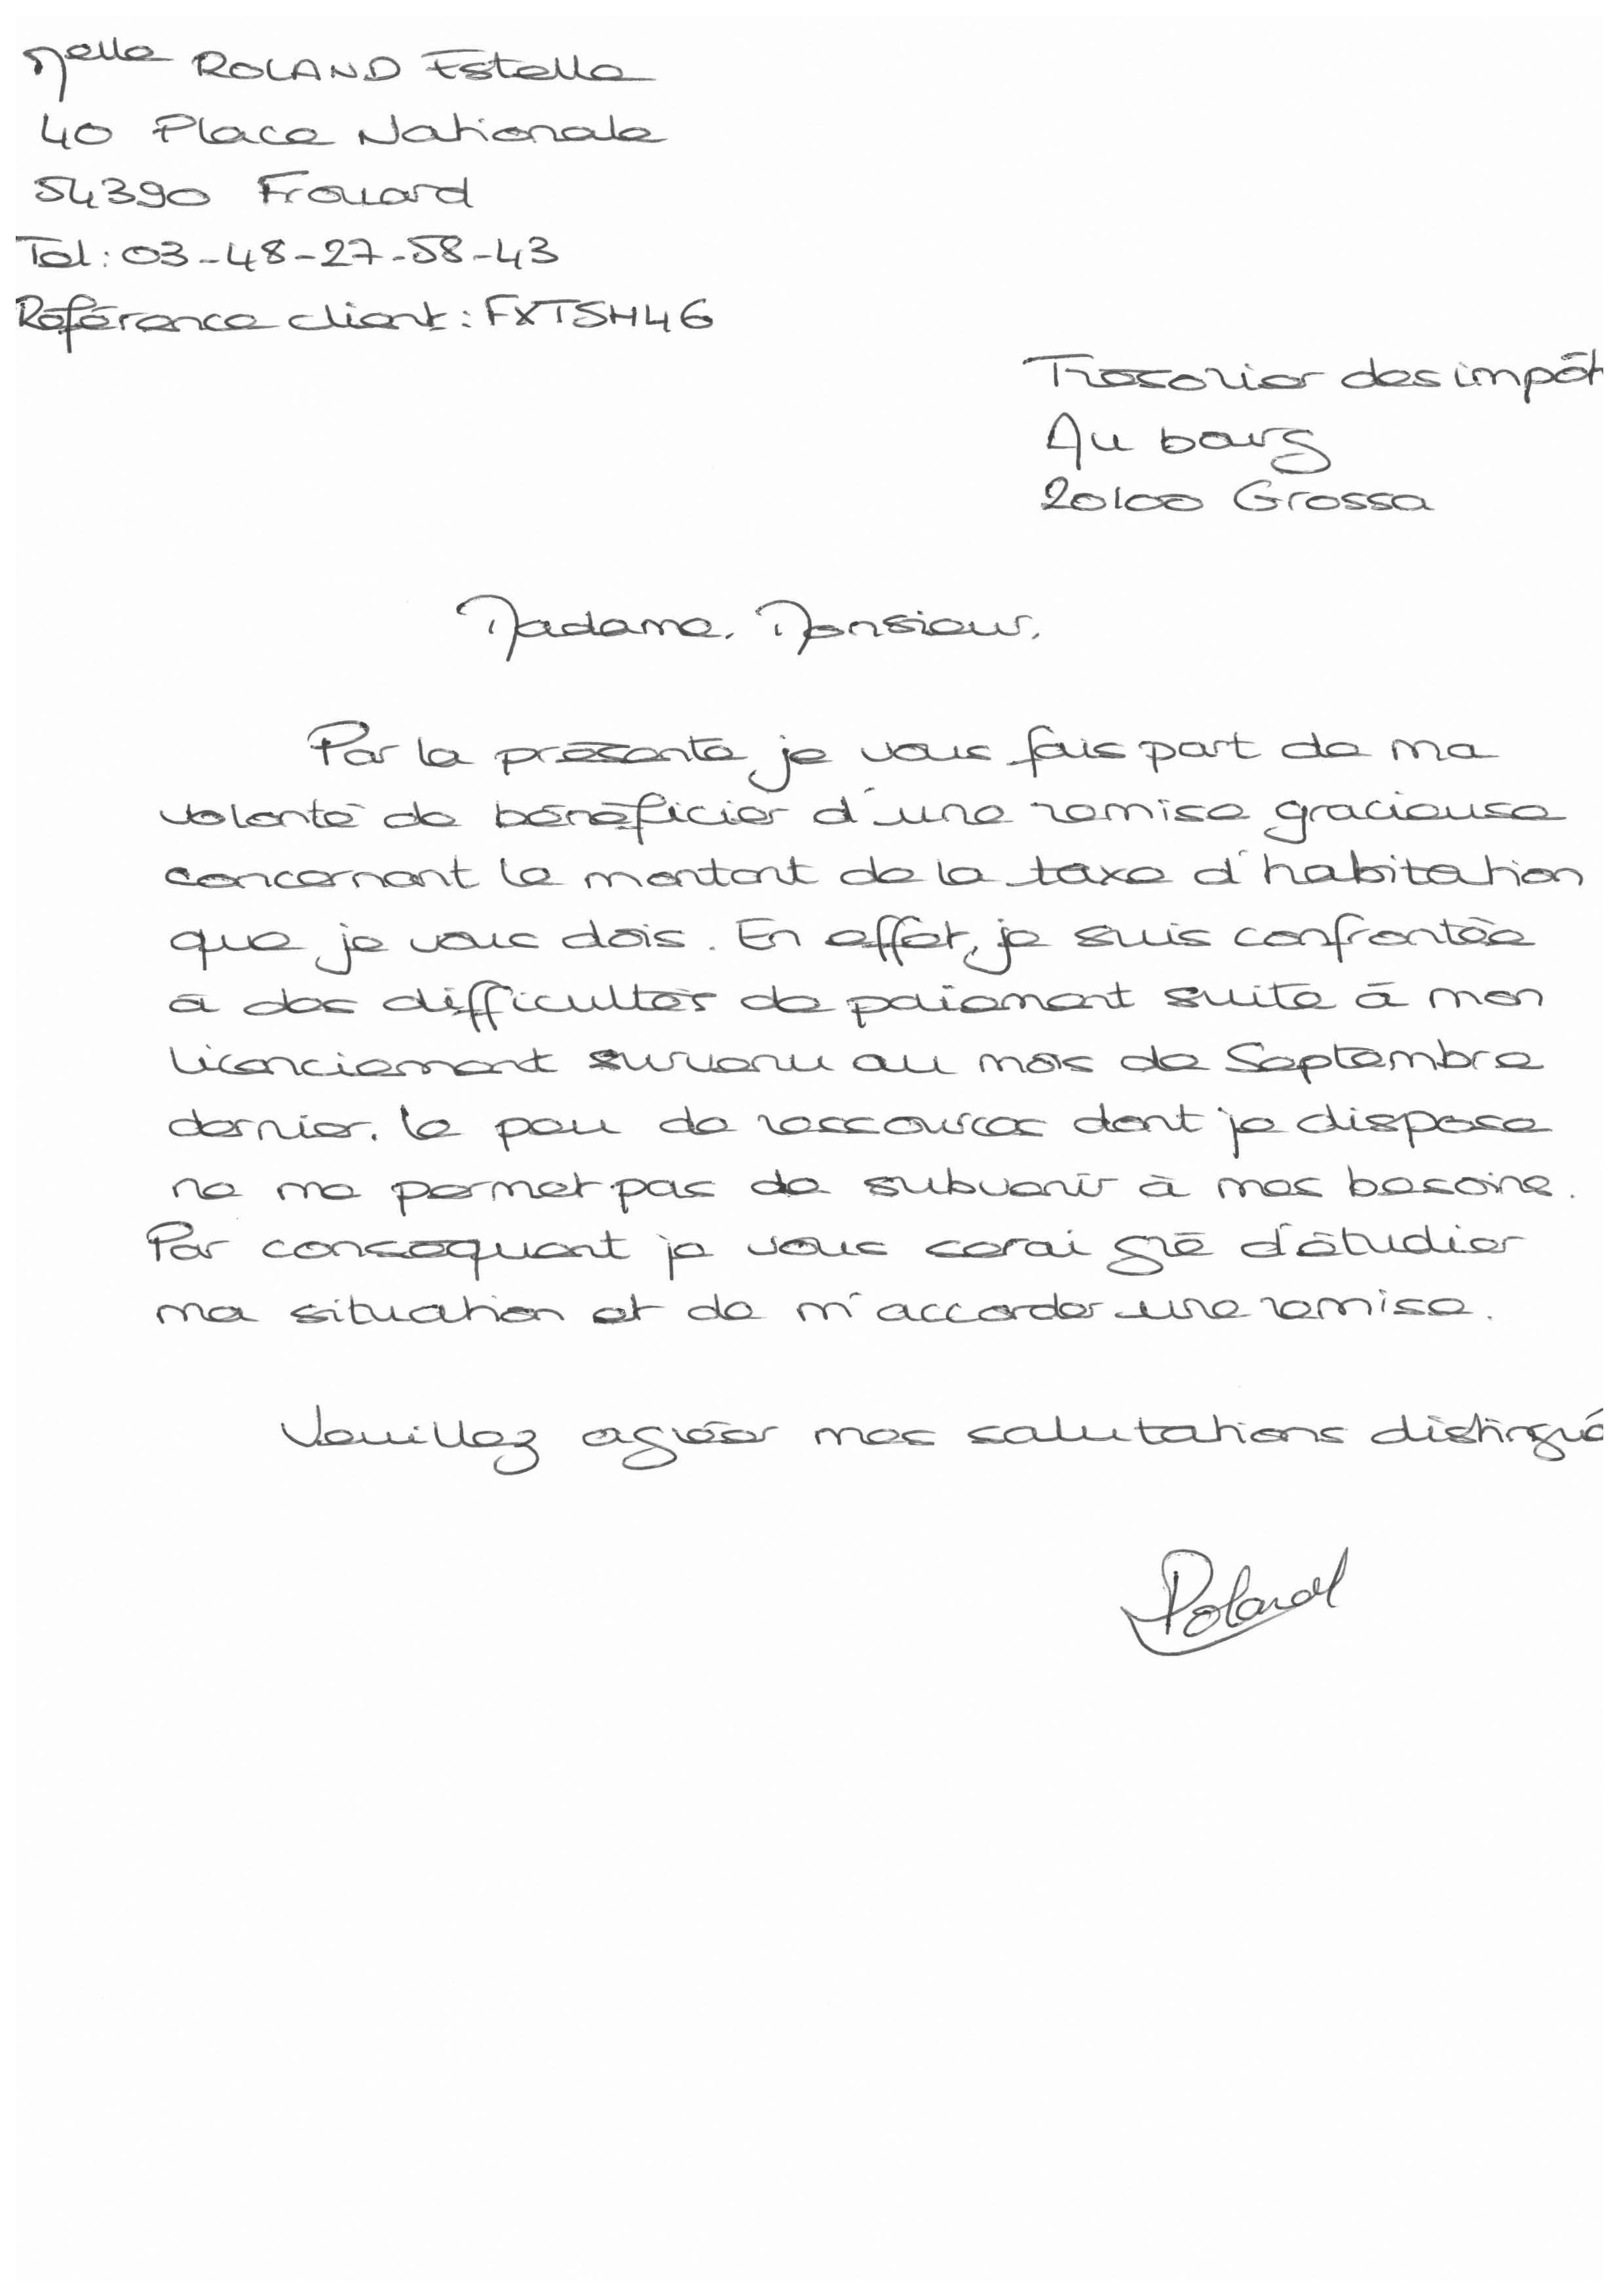 Melle ROLAND Estelle
40 Place Nationale
54390 Frouard
Tel : 03-48-27-58-43
Référence client : FXTSH46
Tresorier des impôt
Au bourg
20100 Grossa
Madame, Monsieur,
Par la présente, je vous fais part de ma
volonté de bénéficier d'une remise gracieuse
concernant le montant de la taxe d'habitation
que je vous dois. En effet, je suis confrontée
à des difficultés de paiement suite à mon
licenciement survenu au mois de Septembre
dernier. Le peu de ressources dont je dispose
ne me permet pas de subvenir à mes besoins.
Par conséquent je vous serai gré d'étudier
ma situation et de m'accorder une remise.
Veuillez agréer mes salutations distingué
Roland